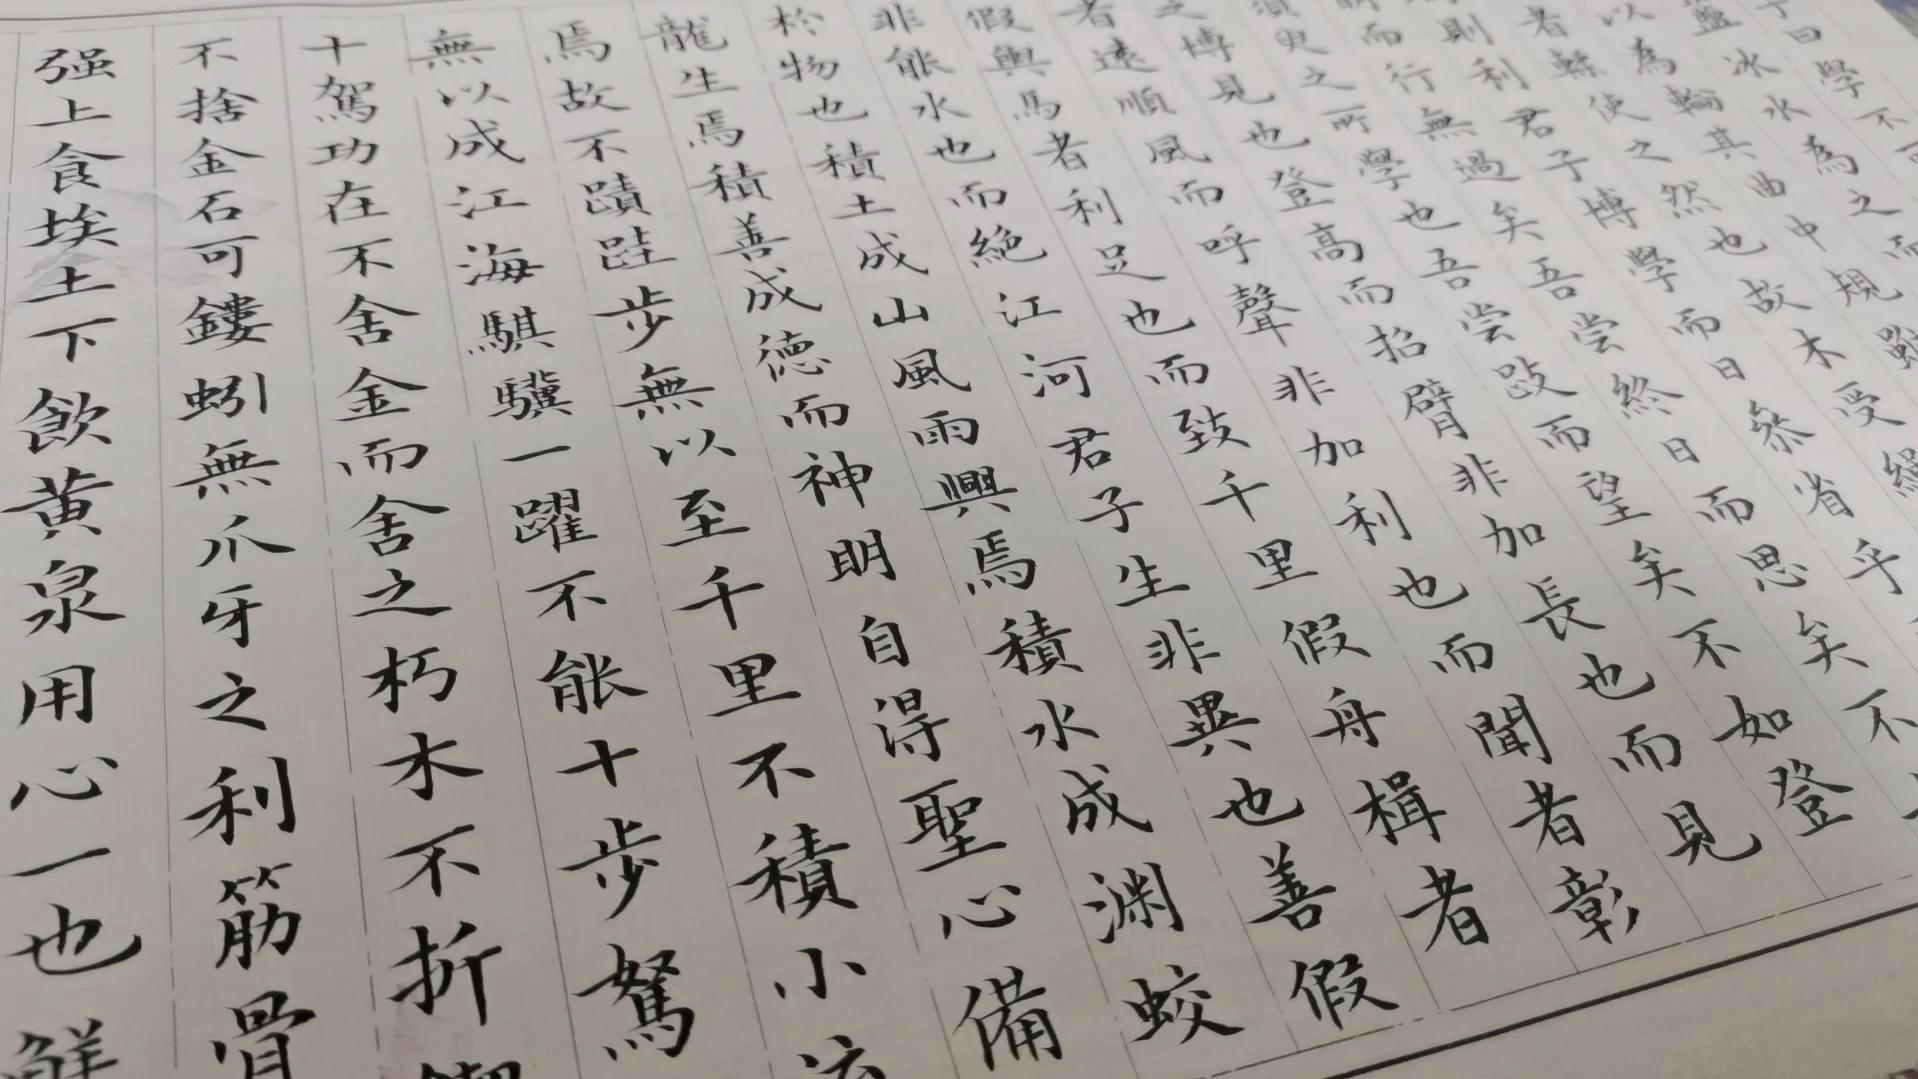 曰學不可
藍冰水為之而
以為輪其曲中規雖
者輮使之然也故木受繩
則利君子博學而日叅省乎
而行無過矣吾尝終日而思矣不
須臾之所學也吾尝跂而望矣不如登
之博見也登高而招臂非加長也而見
者遠順風而呼聲非加利也而聞者彰
假輿馬者利足也而致千里假舟楫者
非能水也而絶江河君子生非異也善假
於物也積土成山風雨興焉積水成渊蛟
龍生焉積善成德而神明自得聖心備
焉故不蹟跬步無以至千里不積小流
無以成江海騏驥一躍不能十步駑
十駕功在不舍金而舍之朽木不折
不捨金石可鏤蚓無爪牙之利筋骨
强上食埃土下飲黄泉用心一也